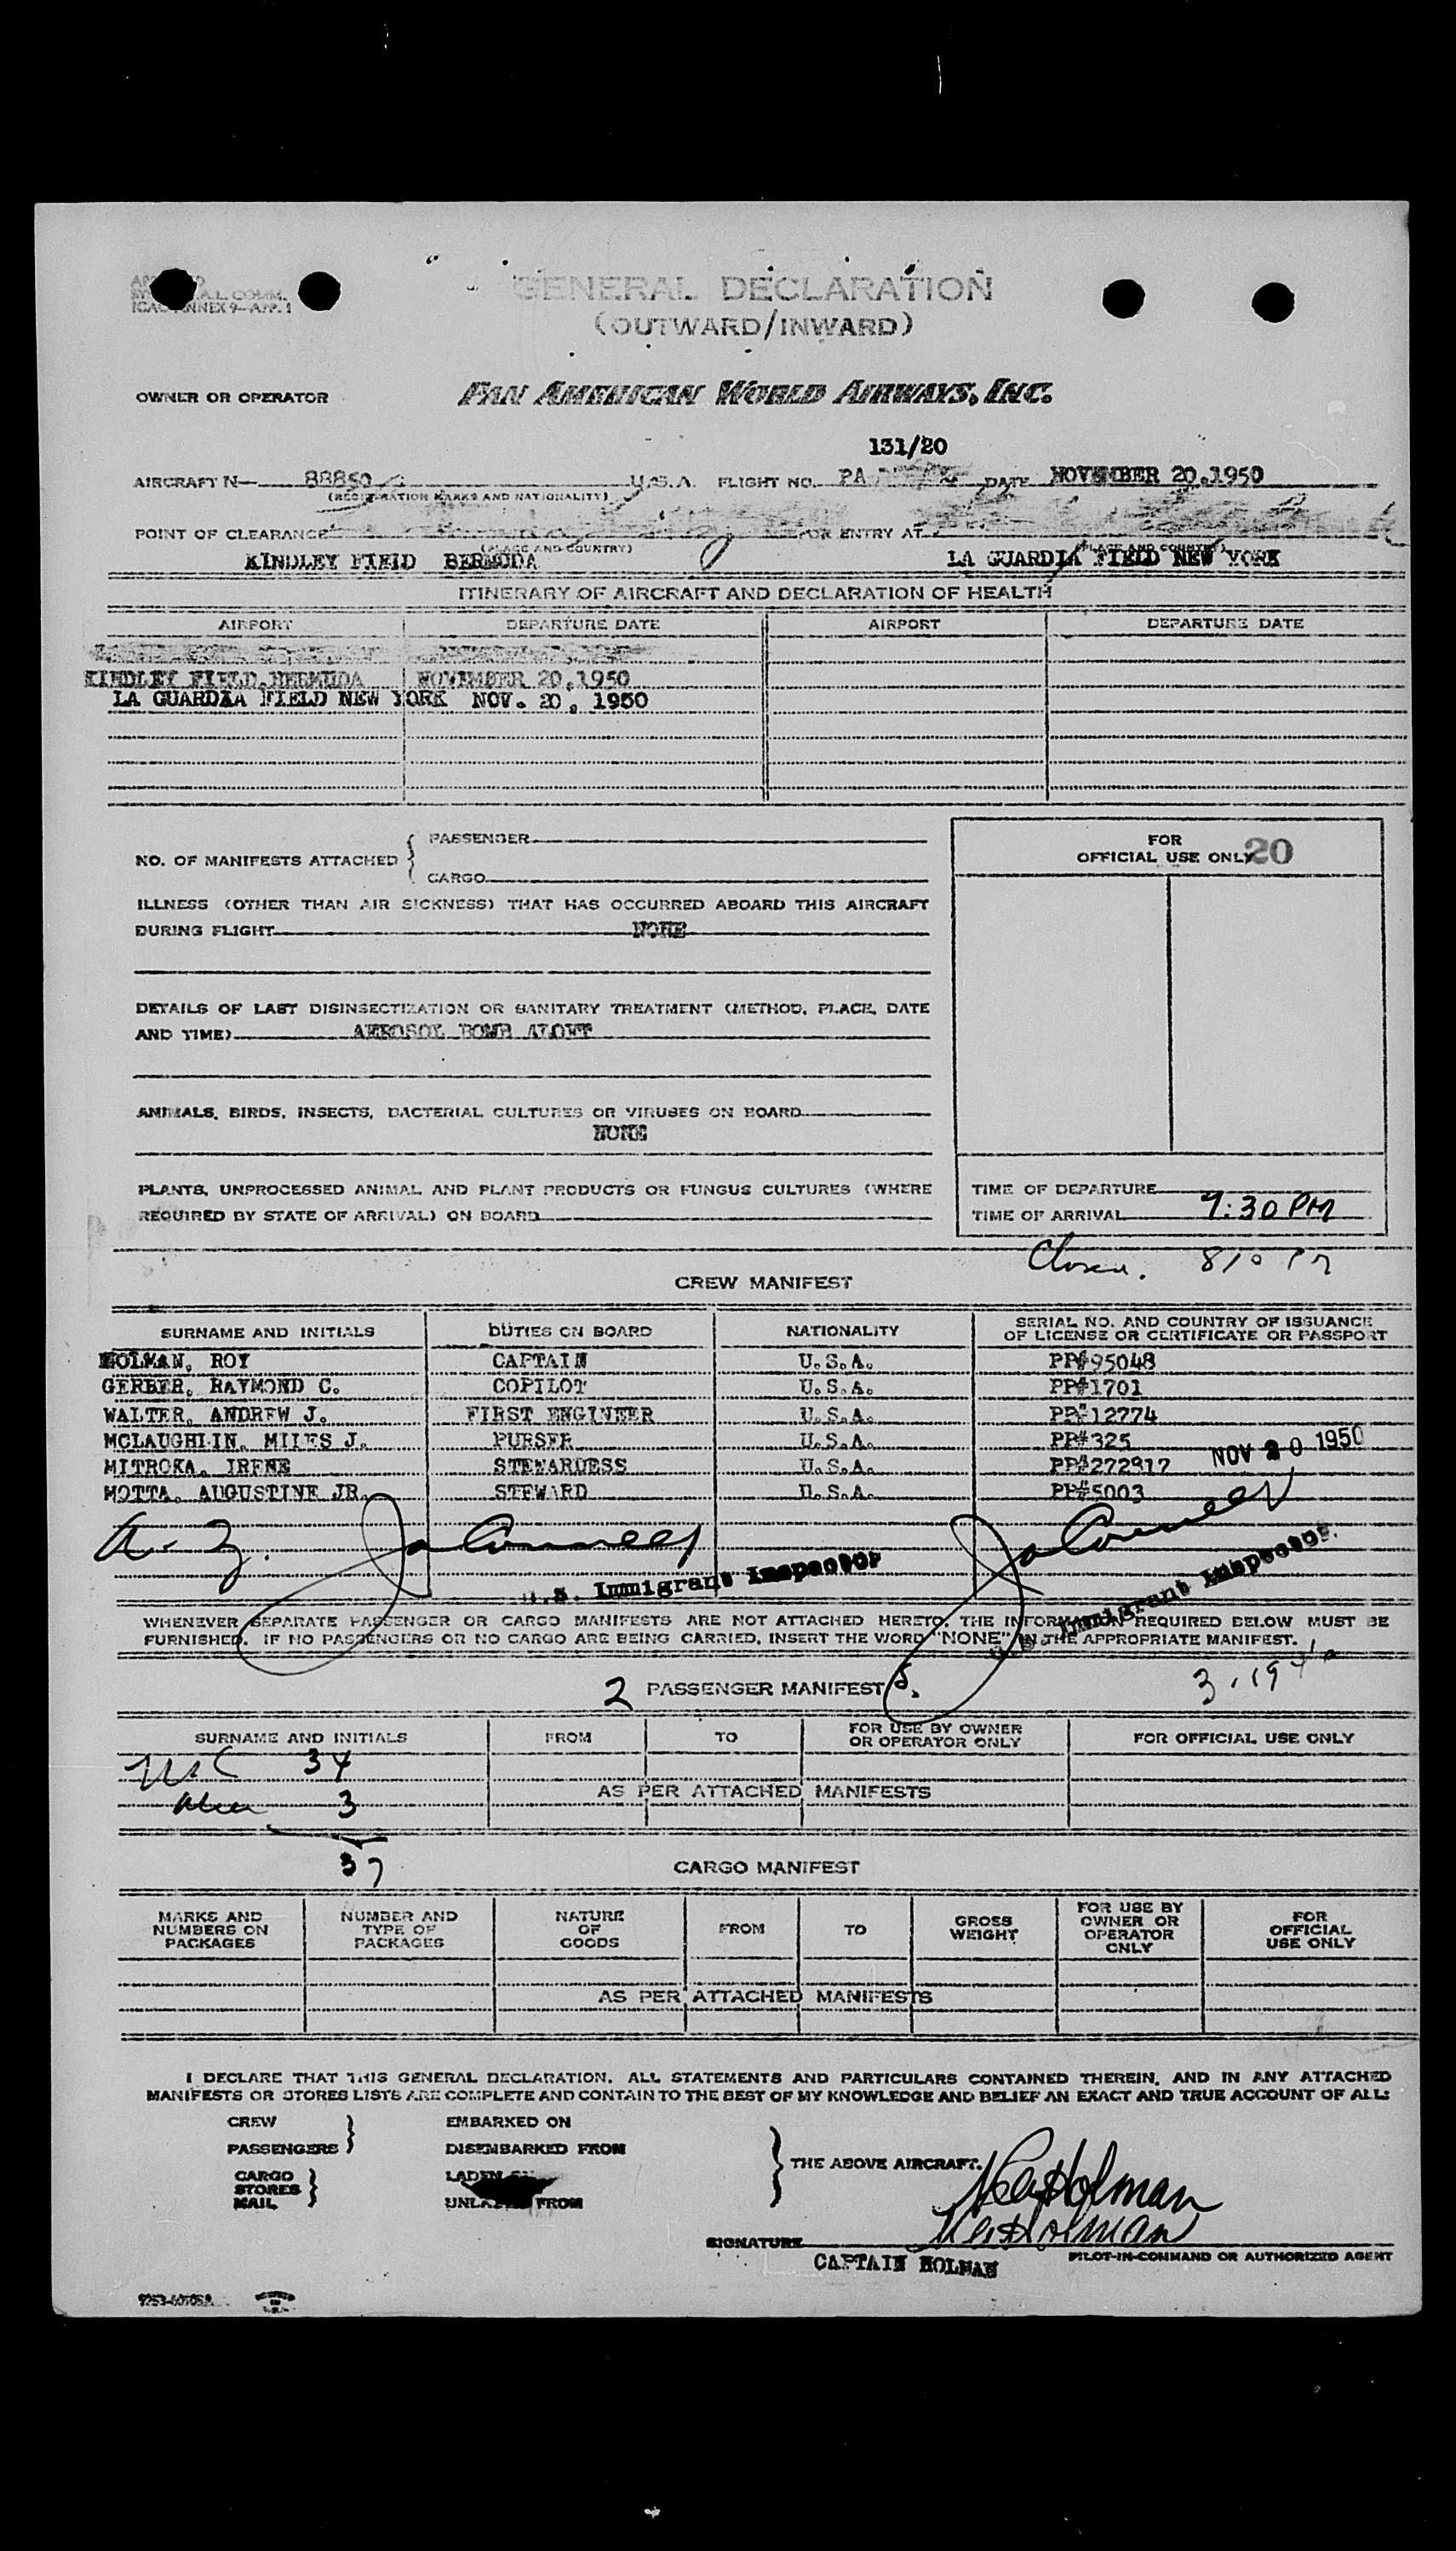 GENERAL DECLARATION
(OUTWARD/INWARD)
OWNER OR OPERATOR PAN AMERICAN WORLD AIRWAYS, INC.
131/20
AIRCRAFT N— 88850 U.S.A. FLIGHT NO. PA DATE NOVEMBER 20,1950
(REGISTRATION MARKS AND NATIONALITY)
POINT OF CLEARANCE FOR ENTRY AT
(PLACE AND COUNTRY) (PLACE AND COUNTRY)
KINDLEY FIELD BERMUDA LA GUARDIA FIELD NEW YORK
ITINERARY OF AIRCRAFT AND DECLARATION OF HEALTH
AIRPORT DEPARTURE DATE AIRPORT DEPARTURE DATE
KINDLEY FIELD, BERMUDA NOVEMBER 20,1950
LA GUARDAA FIELD NEW YORK NOV. 20, 1950
NO. OF MANIFESTS ATTACHED { PASSENGER
CARGO
FOR
OFFICIAL USE ONLY 20
ILLNESS (OTHER THAN AIR SICKNESS) THAT HAS OCCURRED ABOARD THIS AIRCRAFT
DURING FLIGHT NONE
DETAILS OF LAST DISINSECTIZATION OR SANITARY TREATMENT (METHOD, PLACE, DATE
AND TIME) AEROSOL BOMB ALOFT
ANIMALS, BIRDS, INSECTS, BACTERIAL CULTURES OR VIRUSES ON BOARD
NONE
PLANTS, UNPROCESSED ANIMAL AND PLANT PRODUCTS OR FUNGUS CULTURES (WHERE
REQUIRED BY STATE OF ARRIVAL) ON BOARD
TIME OF DEPARTURE
TIME OF ARRIVAL 7:30 PM
CREW MANIFEST
SURNAME AND INITIALS DUTIES ON BOARD NATIONALITY SERIAL NO. AND COUNTRY OF ISSUANCE OF LICENSE OR CERTIFICATE OR PASSPORT
HOLMAN, ROY CAPTAIN U.S.A. PP#95048
GERBER, RAYMOND C. COPILOT U.S.A. PP#1701
WALTER, ANDREW J. FIRST ENGINEER U.S.A. PP#12774
MCLAUGHLIN, MILES J. PURSER U.S.A. PP#325
NOV 20 1950
MITROKA, IRENE STEWARDESS U.S.A. PP#272817
MOTTA, AUGUSTINE JR. STEWARD U.S.A. PP#5003
U.S. Immigrant Inspector
U.S. Immigrant Inspector
WHENEVER SEPARATE PASSENGER OR CARGO MANIFESTS ARE NOT ATTACHED HERETO, THE INFORMATION REQUIRED BELOW MUST BE
FURNISHED. IF NO PASSENGERS OR NO CARGO ARE BEING CARRIED, INSERT THE WORD "NONE" IN THE APPROPRIATE MANIFEST.
2 PASSENGER MANIFEST S.
SURNAME AND INITIALS FROM TO FOR USE BY OWNER OR OPERATOR ONLY FOR OFFICIAL USE ONLY
34
AS PER ATTACHED MANIFESTS
3
37
CARGO MANIFEST
MARKS AND NUMBERS ON PACKAGES NUMBER AND TYPE OF PACKAGES NATURE OF GOODS FROM TO GROSS WEIGHT FOR USE BY OWNER OR OPERATOR ONLY FOR OFFICIAL USE ONLY
AS PER ATTACHED MANIFESTS
I DECLARE THAT THIS GENERAL DECLARATION, ALL STATEMENTS AND PARTICULARS CONTAINED THEREIN, AND IN ANY ATTACHED
MANIFESTS OR STORES LISTS ARE COMPLETE AND CONTAIN TO THE BEST OF MY KNOWLEDGE AND BELIEF AN EXACT AND TRUE ACCOUNT OF ALL:
CREW EMBARKED ON
PASSENGERS } DISEMBARKED FROM
CARGO LADEN
STORES } THE ABOVE AIRCRAFT.
MAIL FROM
SIGNATURE
CAPTAIN HOLMAN PILOT-IN-COMMAND OR AUTHORIZED AGENT